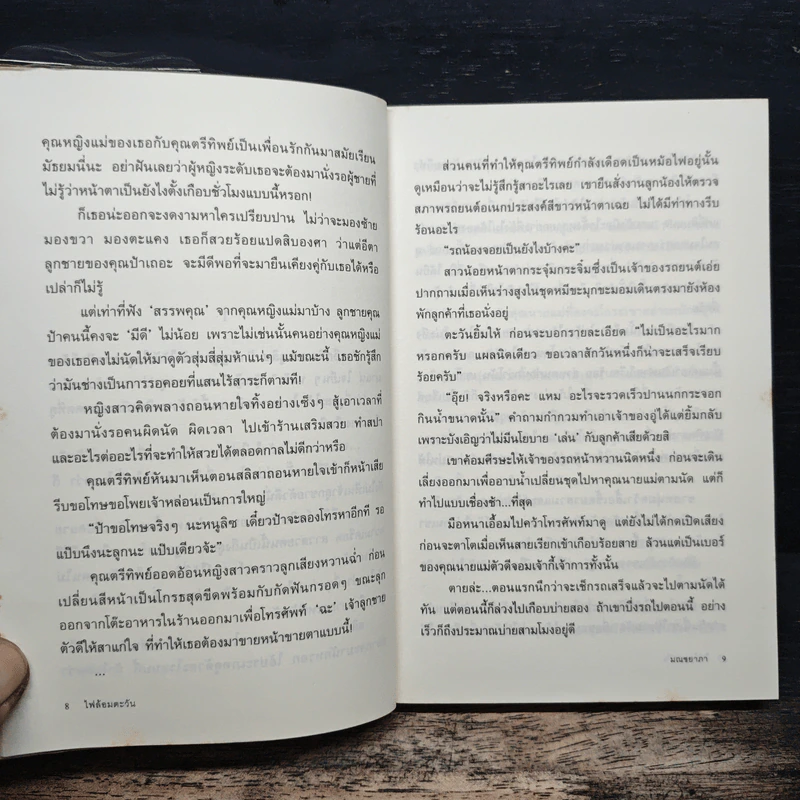 คุณหญิงแม่ของเธอกับคุณตรีทิพย์เป็นเพื่อนรักกันมาสมัยเรียน
มัธยมนี่นะ อย่าฝันเลยว่าผู้หญิงระดับเธอจะต้องมานั่งรอผู้ชายที่
ไม่รู้ว่าหน้าตาเป็นยังไงตั้งเกือบชั่วโมงแบบนี้หรอก!
ก็เธอน่ะออกจะงดงามหาใครเปรียบปาน ไม่ว่าจะมองซ้าย
มองขวา มองตะแคง เธอก็สวยร้อยแปดสิบองศา ว่าแต่อีตา
ลูกชายของคุณป้าเถอะ จะมีดีพอที่จะมายืนเคียงคู่กับเธอได้หรือ
เปล่าก็ไม่รู้
แต่เท่าที่ฟัง ‘สรรพคุณ’ จากคุณหญิงแม่มาบ้าง ลูกชายคุณ
ป้าคนนี้คงจะ ‘มีดี’ ไม่น้อย เพราะไม่เช่นนั้นคนอย่างคุณหญิงแม่
ของเธอคงไม่นัดให้มาดูตัวสุ่มสี่สุ่มห้าแน่ๆ แม้ขณะนี้ เธอชักรู้สึก
ว่ามันช่างเป็นการรอคอยที่แสนไร้สาระก็ตามที!
หญิงสาวคิดพลางถอนหายใจทิ้งอย่างเซ็งๆ สู้เอาเวลาที่
ต้องมานั่งรอคนผิดนัด ผิดเวลา ไปเข้าร้านเสริมสวย ทำสปา
และอะไรต่ออะไรที่จะทำให้สวยได้ตลอดกาลไม่ดีกว่าหรือ
คุณตรีทิพย์หันมาเห็นตอนสลิสาถอนหายใจเข้าก็หน้าเสีย
รีบขอโทษขอโพยเจ้าหล่อนเป็นการใหญ่
“ป้าขอโทษจริงๆ นะหนูลิซ เดี๋ยวป้าจะลองโทรหาอีกที รอ
แป๊บนึงนะลูกนะ แป๊บเดียวจ้ะ”
คุณตรีทิพย์ออดอ้อนหญิงสาวคราวลูกเสียงหวานฉ่ำ ก่อน
เปลี่ยนสีหน้าเป็นโกรธสุดขีดพร้อมกับกัดฟันกรอดๆ ขณะลุก
ออกจากโต๊ะอาหารในร้านออกมาเพื่อโทรศัพท์ ‘ฉะ’ เจ้าลูกชาย
ตัวดีให้สาแก่ใจ ที่ทำให้เธอต้องมาขายหน้าขายตาแบบนี้!
...
8 ไฟล้อมตะวัน
ส่วนคนที่ทำให้คุณตรีทิพย์กำลังเดือดเป็นหม้อไฟอยู่นั้น
ดูเหมือนว่าจะไม่รู้สึกรู้สาอะไรเลย เขายืนสั่งงานลูกน้องให้ตรวจ
สภาพรถยนต์อเนกประสงค์สีขาวหน้าตาเฉย ไม่ได้มีท่าทางรีบ
ร้อนอะไร
“รถน้องจอยเป็นยังไงบ้างคะ”
สาวน้อยหน้าตากระจุ๋มกระจิ๋มซึ่งเป็นเจ้าของรถยนต์เอ่ย
ปากถามเมื่อเห็นร่างสูงในชุดหมีขะมุกขะมอมเดินตรงมายังห้อง
พักลูกค้าที่เธอนั่งอยู่
ตะวันยิ้มให้ ก่อนจะบอกรายละเอียด “ไม่เป็นอะไรมาก
หรอกครับ แผลนิดเดียว ขอเวลาสักวันหนึ่งก็น่าจะเสร็จเรียบ
ร้อยครับ”
“อุ๊ย! จริงหรือคะ แหม อะไรจะรวดเร็วปานนกกระจอก
กินน้ำขนาดนั้น” คำถามกำกวมทำเอาเจ้าของอู่ได้แต่ยิ้มกลับ
เพราะบังเอิญว่าไม่มีนโยบาย ‘เล่น’ กับลูกค้าเสียด้วยสิ
เขาค้อมศีรษะให้เจ้าของรถหน้าหวานนิดหนึ่ง ก่อนจะเดิน
เลี่ยงออกมาเพื่ออาบน้ำเปลี่ยนชุดไปหาคุณนายแม่ตามนัด แต่ก็
ทำไปแบบเชื่องช้า...ที่สุด
มือหนาเอื้อมไปคว้าโทรศัพท์มาดู แต่ยังไม่ได้กดเปิดเสียง
ก่อนจะตาโตเมื่อเห็นสายเรียกเข้าเกือบร้อยสาย ล้วนแต่เป็นเบอร์
ของคุณนายแม่ตัวดีจอมเจ้ากี้เจ้าการทั้งนั้น
ตายล่ะ...ตอนแรกนึกว่าจะเช็กรถเสร็จแล้วจะไปตามนัดได้
ทัน แต่ตอนนี้ก็ล่วงไปเกือบบ่ายสอง ถ้าเขาบึ่งรถไปตอนนี้ อย่าง
เร็วก็ถึงประมาณบ่ายสามโมงอยู่ดี
มณชยาภา 9